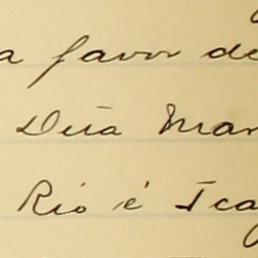 a favor de
Dúa Mar
Rio é Ica